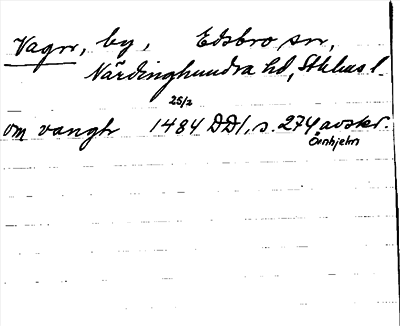 Vagn, by, Edsbro sn,
Närdinghundra hd, Sthlms l.
25/2
om vangh 1484 DD1, s. 274, avskr.
Örnhjelm